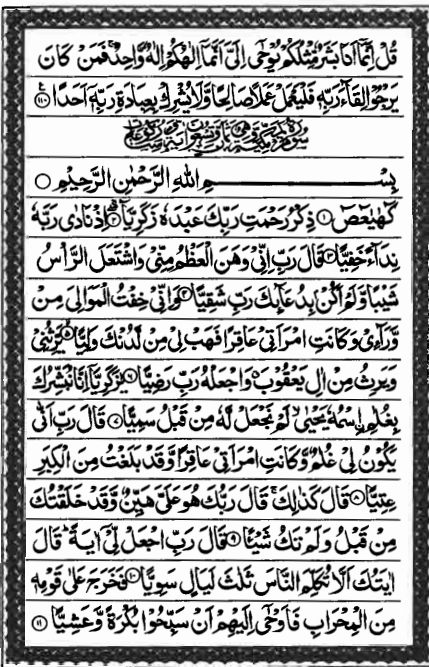 قُلْ اِنَّمَاۤ اَنَا بَشَرٌ مِّثْلُكُمْ یُوْحٰۤى اِلَیَّ اَنَّمَاۤ اِلٰهُكُمْ اِلٰهٌ وَّاحِدٌ ۚ فَمَنْ كَانَ
یَرْجُوْا لِقَآءَ رَبِّهٖ فَلْیَعْمَلْ عَمَلًا صَالِحًا وَّلَا یُشْرِكْ بِعِبَادَةِ رَبِّهٖۤ اَحَدًا ﴿۱۱۰﴾
بِسْمِ اللّٰهِ الرَّحْمٰنِ الرَّحِیْمِ ○
كٓهٰیٰعٓصٓ ﴿۱﴾ ذِكْرُ رَحْمَتِ رَبِّكَ عَبْدَهٗ زَكَرِیَّا ﴿۲﴾ اِذْ نَادٰى رَبَّهٗ
نِدَآءً خَفِیًّا ﴿۳﴾ قَالَ رَبِّ اِنِّیْ وَهَنَ الْعَظْمُ مِنِّیْ وَاشْتَعَلَ الرَّاْسُ
شَیْبًا وَّلَمْ اَكُنْۢ بِدُعَآىِٕكَ رَبِّ شَقِیًّا ﴿۴﴾ وَاِنِّیْ خِفْتُ الْمَوَالِیَ مِنْ
وَّرَآءِیْ وَكَانَتِ امْرَاَتِیْ عَاقِرًا فَهَبْ لِیْ مِنْ لَّدُنْكَ وَلِیًّا ﴿۵﴾ یَّرِثُنِیْ
وَیَرِثُ مِنْ اٰلِ یَعْقُوْبَ ۖ وَاجْعَلْهُ رَبِّ رَضِیًّا ﴿۶﴾ یٰزَكَرِیَّاۤ اِنَّا نُبَشِّرُكَ
بِغُلٰمِ ِ۟اسْمُهٗ یَحْیٰى ۙ لَمْ نَجْعَلْ لَّهٗ مِنْ قَبْلُ سَمِیًّا ﴿۷﴾ قَالَ رَبِّ اَنّٰى
یَكُوْنُ لِیْ غُلٰمٌ وَّكَانَتِ امْرَاَتِیْ عَاقِرًا وَّقَدْ بَلَغْتُ مِنَ الْكِبَرِ
عِتِیًّا ﴿۸﴾ قَالَ كَذٰلِكَ ۚ قَالَ رَبُّكَ هُوَ عَلَیَّ هَیِّنٌ وَّقَدْ خَلَقْتُكَ
مِنْ قَبْلُ وَلَمْ تَكُ شَیْـًٔا ﴿۹﴾ قَالَ رَبِّ اجْعَلْ لِّیْۤ اٰیَةً ؕ قَالَ
اٰیَتُكَ اَلَّا تُكَلِّمَ النَّاسَ ثَلٰثَ لَیَالٍ سَوِیًّا ﴿۱۰﴾ فَخَرَجَ عَلٰى قَوْمِهٖ
مِنَ الْمِحْرَابِ فَاَوْحٰۤى اِلَیْهِمْ اَنْ سَبِّحُوْا بُكْرَةً وَّعَشِیًّا ﴿۱۱﴾